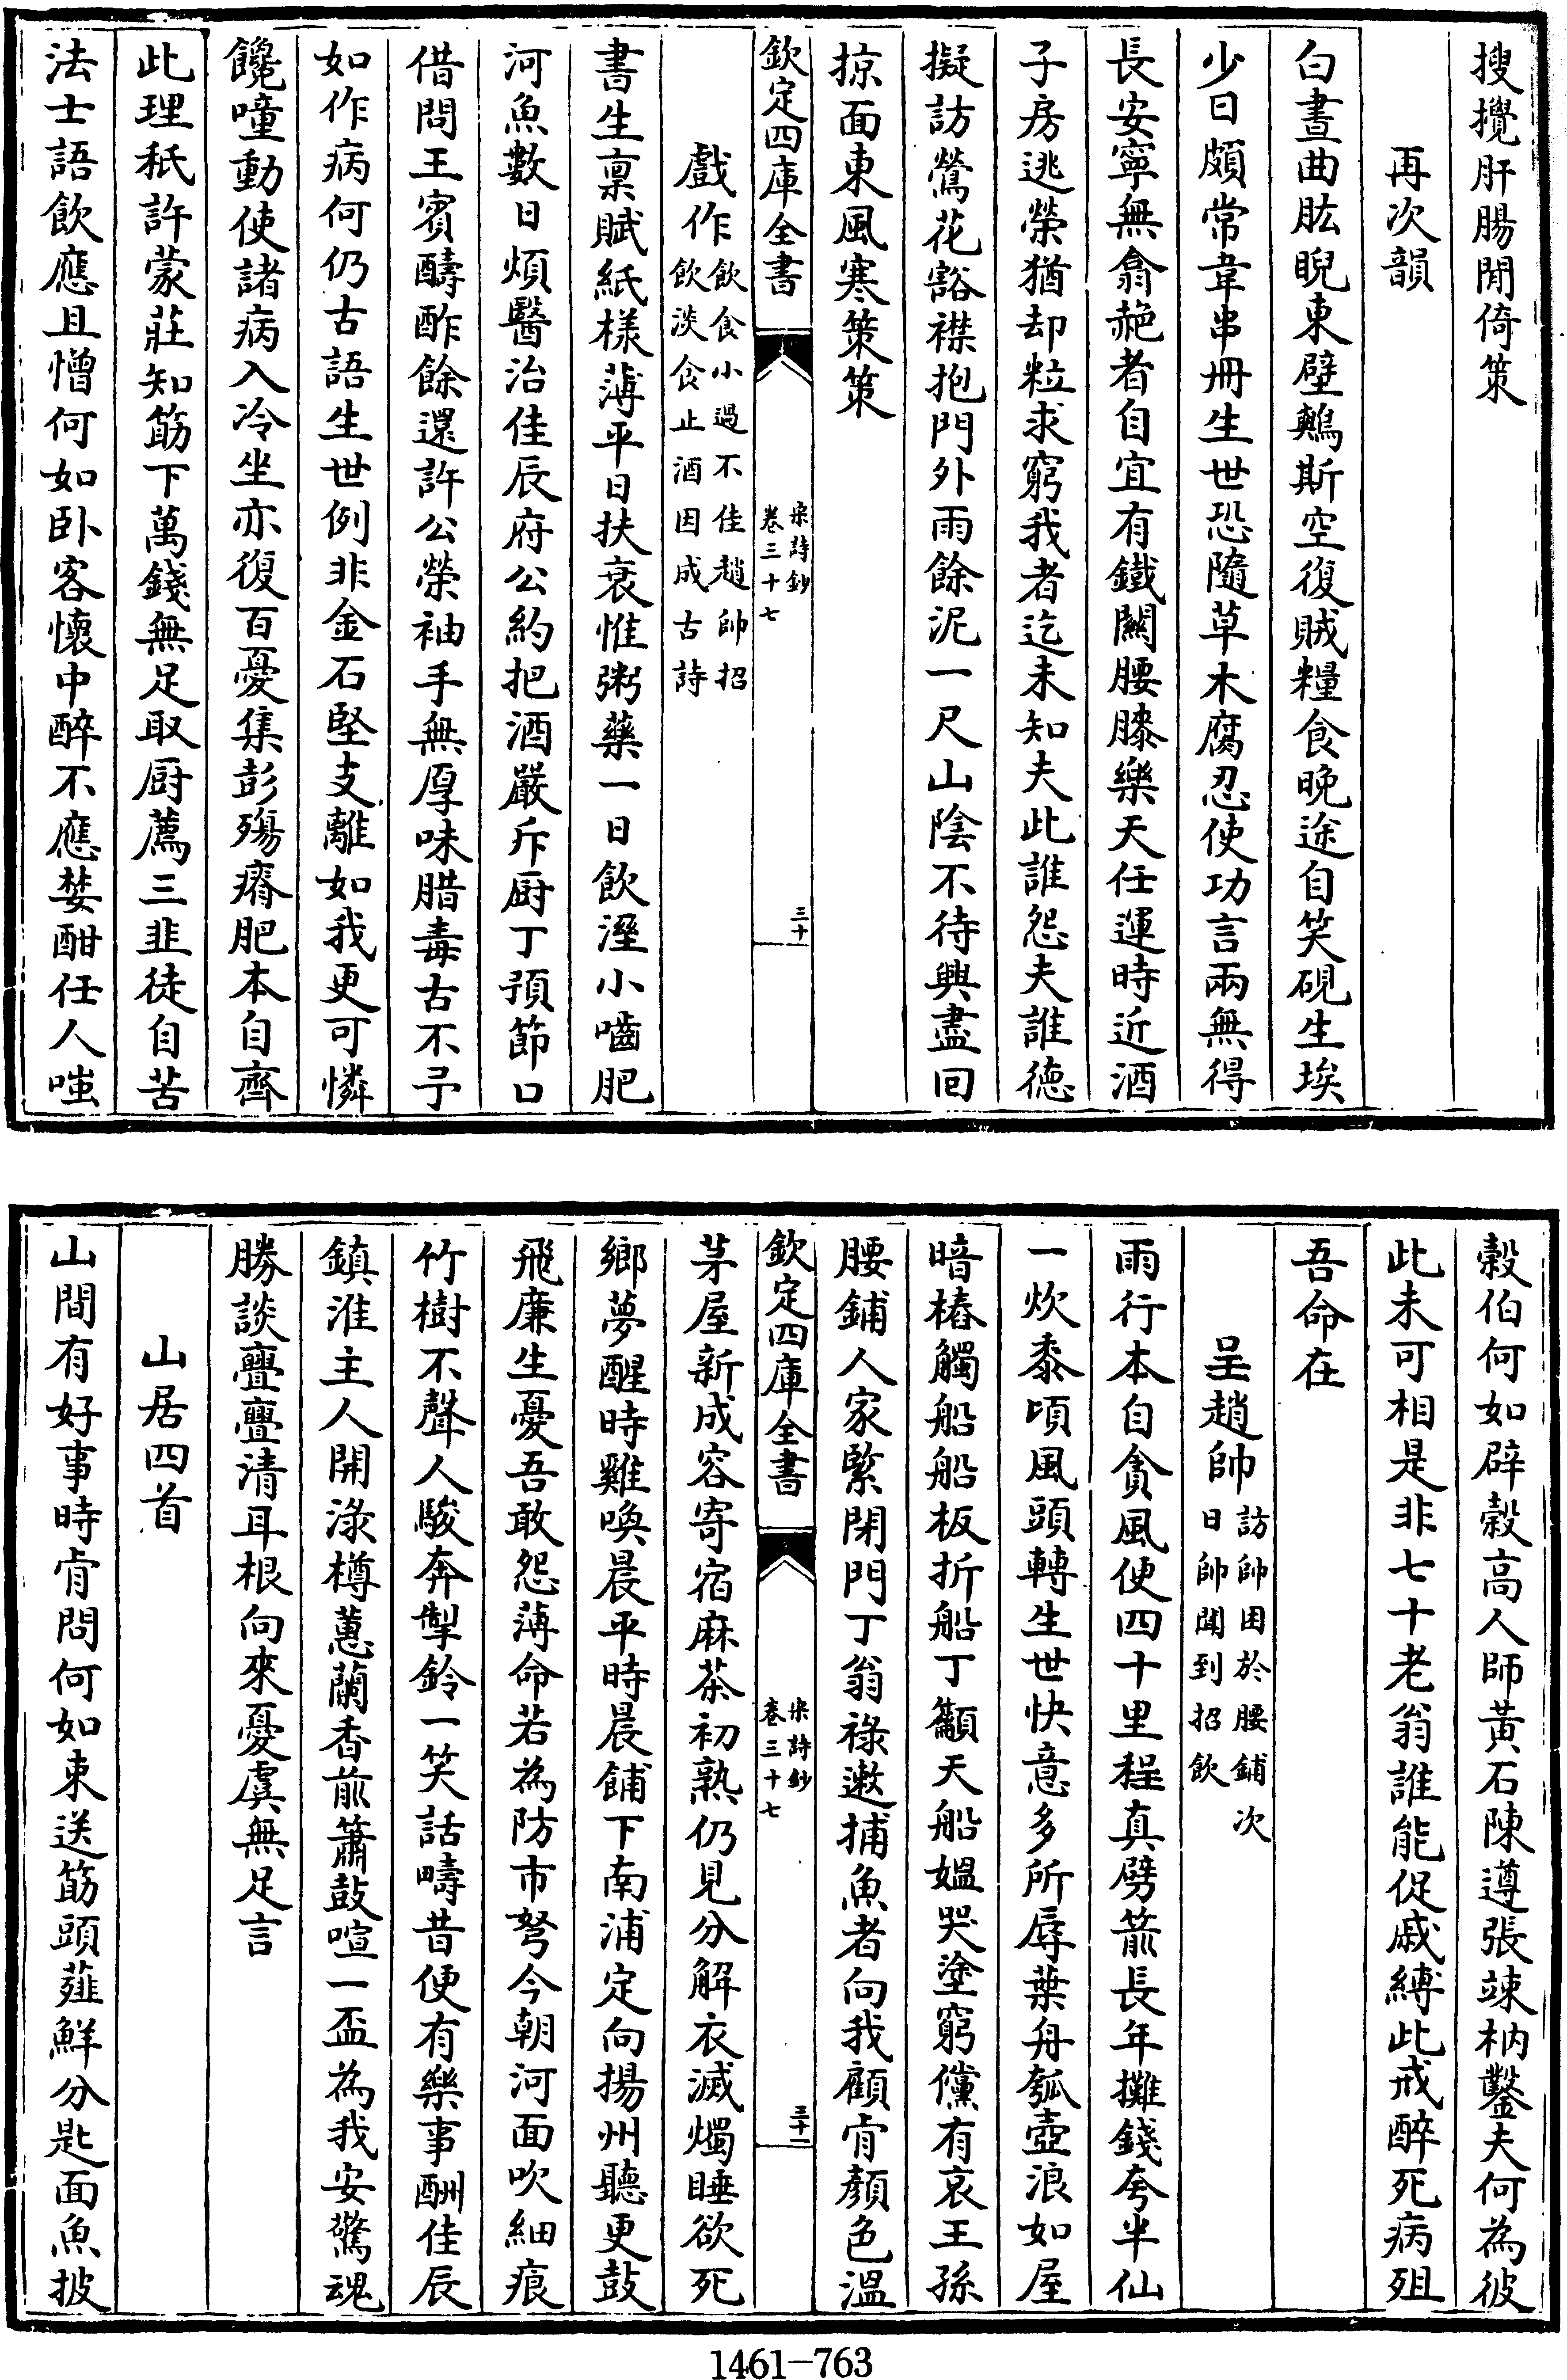 搜攪肝腸閒倚策
再次韻
白晝曲肱睨東壁鷯斯空復賊糧食晚途自笑硯生埃
少日頗常韋串冊生世恐隨草木腐忍使功言兩無得
長安寧無翕赩者自宜有鐵關腰膝樂天任運時近酒
子房逃榮猶却粒求窮我者迄未知夫此誰怨夫誰德
擬訪鶯花豁襟抱門外雨餘泥一尺山陰不待興盡回
掠面東風寒策策
欽定四庫全書
宋詩鈔
卷三十七
三十
戲作飲食小過不佳趙帥招
飲淡食止酒因成古詩
書生禀賦紙樣薄平日扶衰惟粥藥一日飲溼小嚙肥
河魚數日煩醫治佳辰府公約把酒嚴斥厨丁預節口
借問王賓醻酢餘還許公榮袖手無厚味腊毒古不予
如作病何仍古語生世例非金石堅支離如我更可憐
饞噇動使諸病入冷坐亦復百憂集彭殤瘠肥本自齊
此理秖許蒙莊知筯下萬錢無足取厨薦三韭徒自苦
法士語飲應且憎何如卧客懷中醉不應婪酣任人嗤
穀伯何如辟穀高人師黄石陳遵張竦枘鑿夫何為彼
此未可相是非七十老翁誰能促戚縛此戒醉死病殂
吾命在
呈趙帥訪帥困於腰鋪次
日帥聞到招飲
雨行本自貪風便四十里程真劈箭長年攤錢夸半仙
一炊黍頃風頭轉生世快意多所辱葉舟瓠壺浪如屋
暗樁觸船船板折船丁籲天船媼哭塗窮儻有哀王孫
腰鋪人家緊閉門丁翁祿遬捕魚者向我顧肯顏色溫
欽定四庫全書
宋詩鈔
卷三十七
三十一
茅屋新成容寄宿麻茶初熟仍見分解衣滅燭睡欲死
鄉夢醒時雞喚晨平時晨餔下南浦定向揚州聽更鼓
飛廉生憂吾敢怨薄命若為防市弩今朝河面吹細痕
竹樹不聲人駿奔掣鈴一笑話疇昔便有樂事酬佳辰
鎮淮主人開淥樽蕙蘭香前簫鼓喧一盃為我安驚魂
勝談亹亹清耳根向來憂虞無足言
山居四首
山間有好事時肯問何如束送筯頭薤鮮分匙面魚披
1461-763